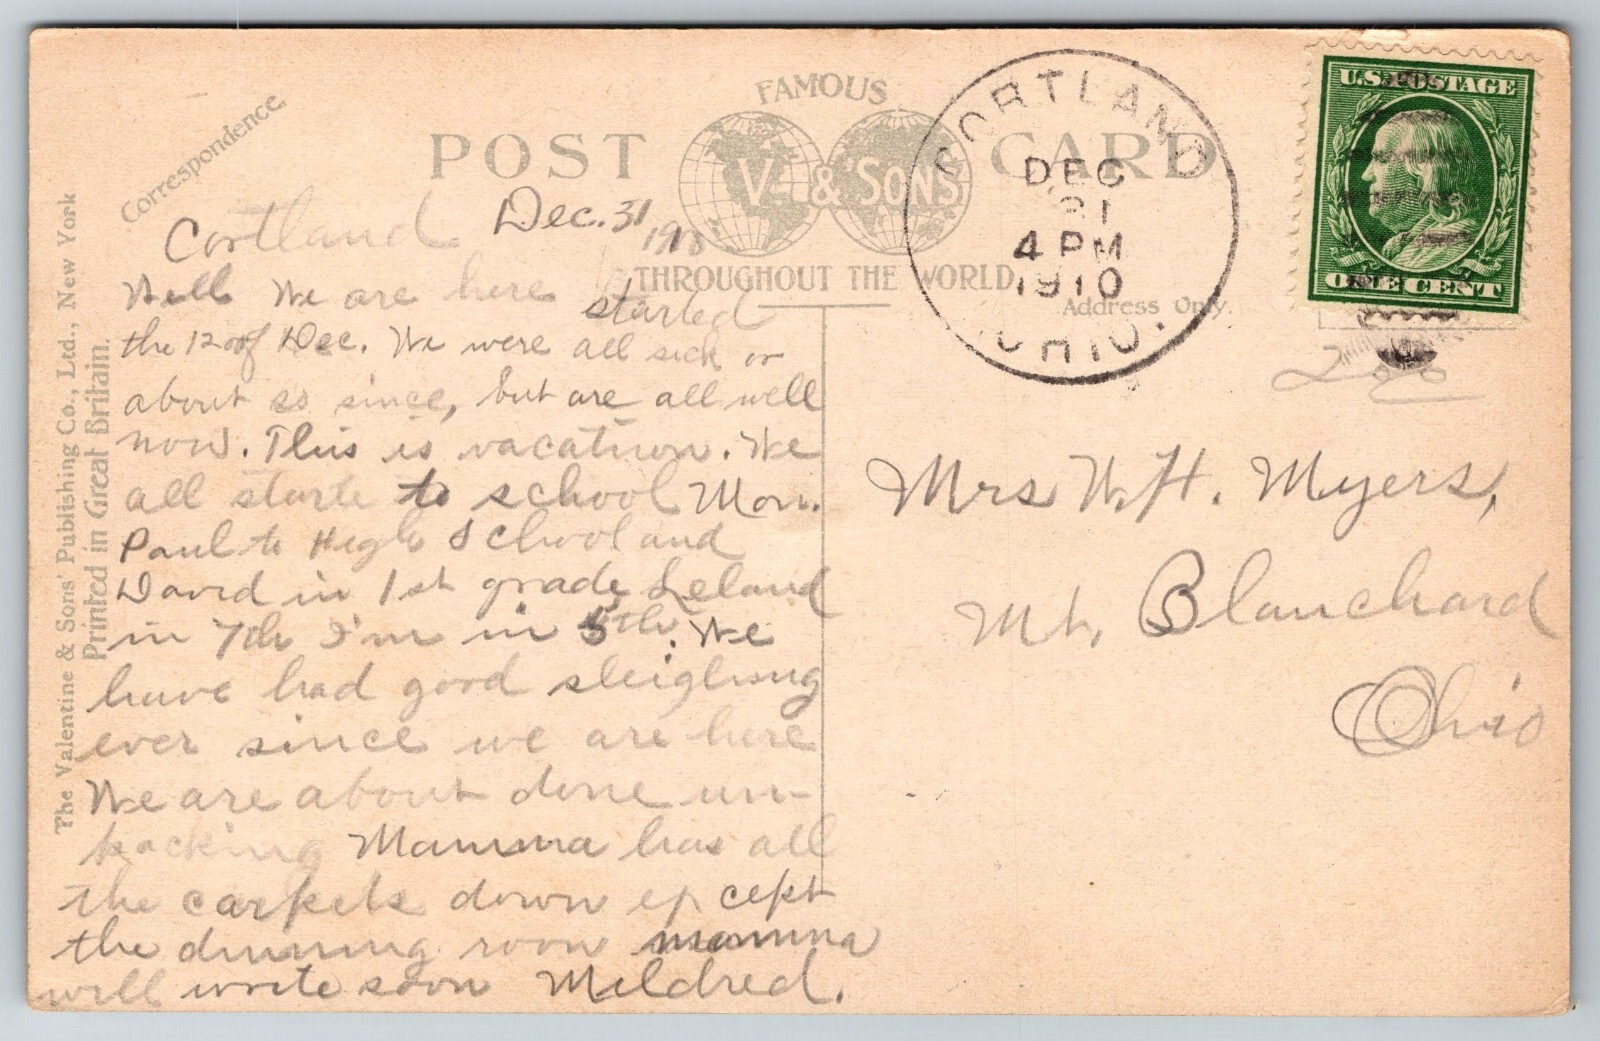 Correspondence
FAMOUS
POST CARD
V. & 'SONS
THROUGHOUT THE WORLD
Address Only.
CORTLAND
DEC
31
4 PM
1910
OHIO.
U.S. POSTAGE
ONE CENT
The Valentine & Sons' Publishing Co., Ltd., New York
Printed in Great Britain.
Cortland Dec. 31 1910
Well We are here started
the 12 of Dec. We were all sick or
about so since, but are all well
now. This is vacation. We
all starte to school Mon.
Paul to High School and
David in 1st grade Leland
in 7th I'm in 5th. We
have had good sleighing
ever since we are here
We are about done un-
packing Mamma has all
the carpets down ep cept
the dinning room mamma
will write soon Mildred.
Mrs W.H. Myers,
Mt. Blanchard
Ohio